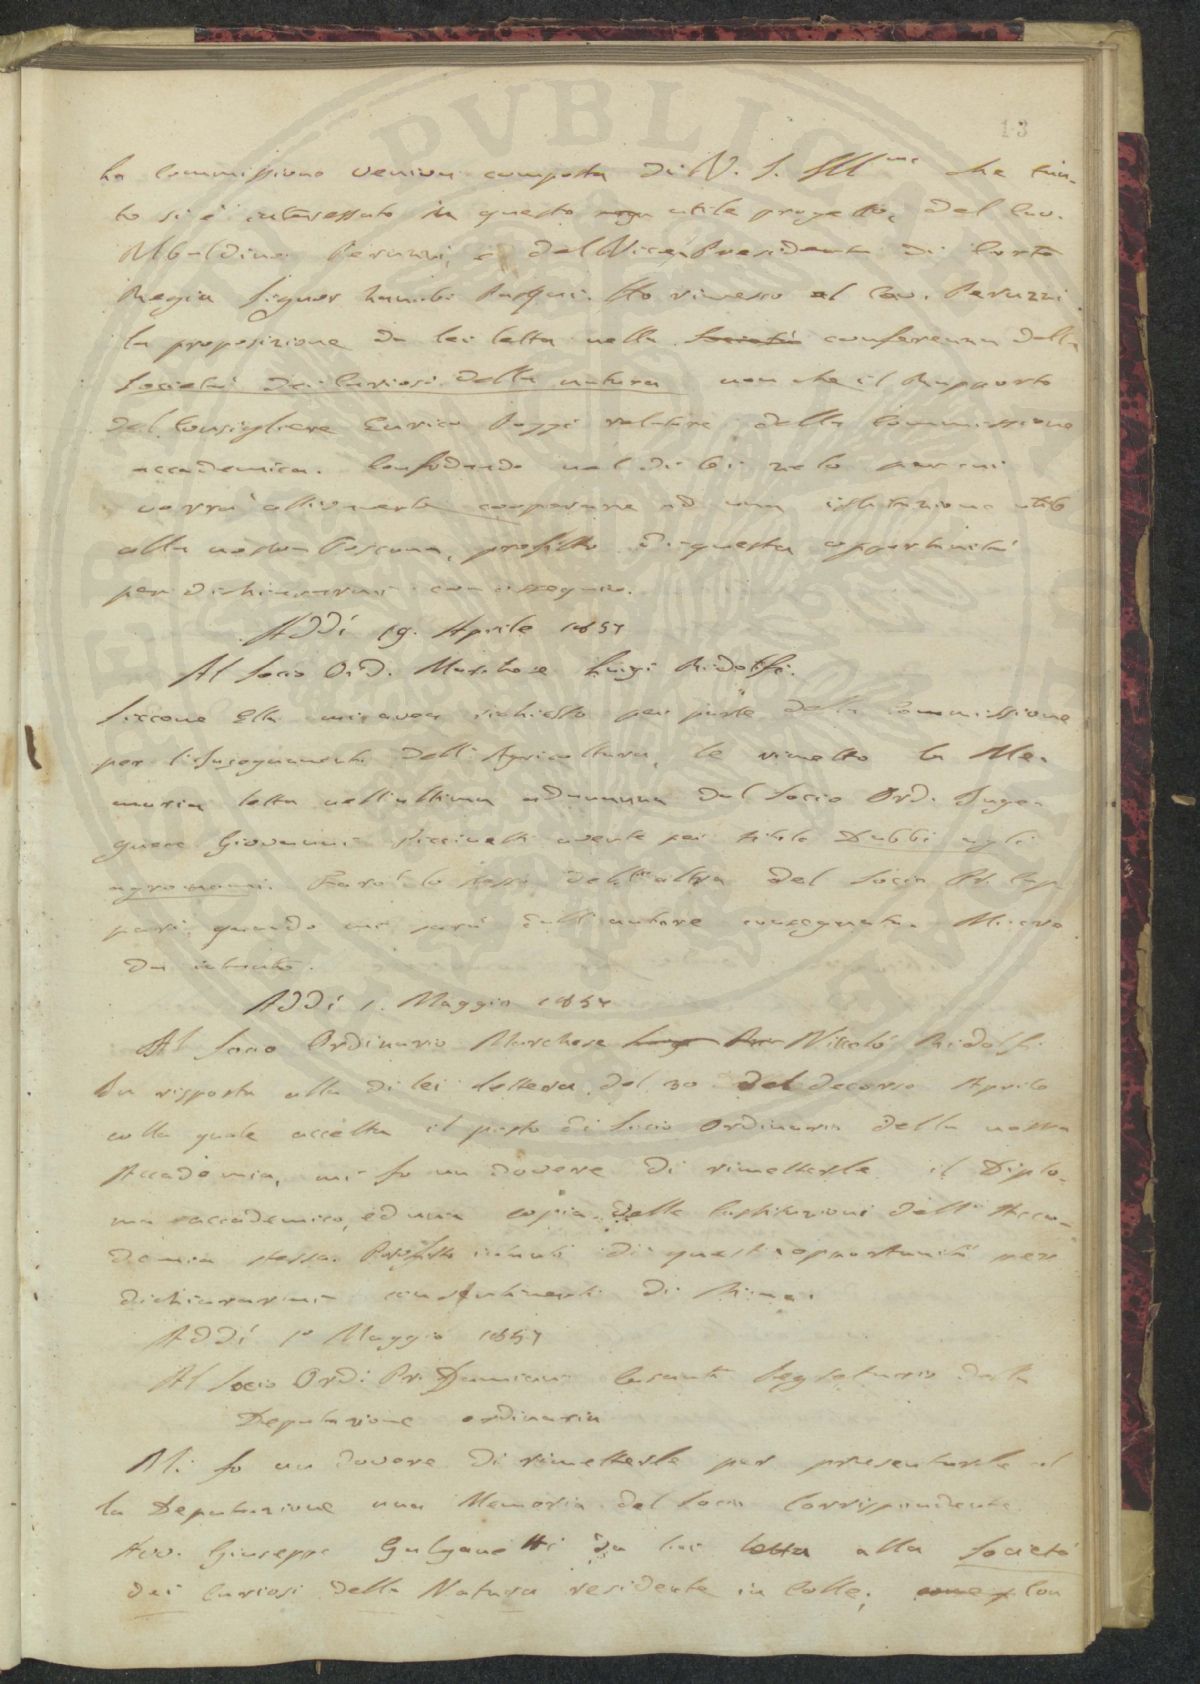 13
la Commissione veniva composta di V. S. Ill.ma che tan-
to si è interessato in questo utile progetto, del Cav.
Ubaldino Peruzzi, e del Vice Presidente di Corte
Regia Signor Pasqui. Ho rimesso al Cav. Peruzzi
la proposizione da lei letta nella Società conferenza della
Società dei Curiosi della natura non che il Rapporto
del Consigliere Enrico Poggi relatore della Commissione
accademica. Confidando nel di lei zelo per cui
vorrà attivamente cooperare ad una istituzione utile
alla nostra Toscana, profitto di questa opportunità
per dichiararmi con ossequio.
Addì 19. Aprile 1857
Al Socio Ord. Marchese Luigi Ridolfi.
Siccome Ella mi avea richiesto per parte della Commissione
per l'Insegnamento dell'Agricoltura, le rimetto la Me-
moria letta nell'ultima adunanza dal Socio Ord. Inge-
gnere Giovanni avente per titolo Dubbi agli
agronomi. Farò lo stesso dell'altra del Socio
quando mi sarà dall'autore consegnata. Mi creda
intanto.
Addì 1. Maggio 1857
Al Socio Ordinario Marchese Luigi Niccolò Ridolfi.
In risposta alla di lei lettera del 30 del decorso Aprile
colla quale accetta il posto di Socio Ordinario della nostra
Accademia, mi fo un dovere di rimetterle il Diplo-
ma accademico, ed una copia delle Costituzioni dell'Acca-
demia stessa. Profitto intanto di quest'opportunità per
dichiararmi con sentimenti di stima.
Addì 1° Maggio 1857
Al Socio Ord. Pr. Damiano Casanti Segretario della
Deputazione ordinaria
Mi fo un dovere di rimetterle per presentarle al
la Deputazione una Memoria del Socio Corrispondente
Avv. Giuseppe Galganetti da lui letta alla Società
dei Curiosi della Natura residente in Colle; come Con